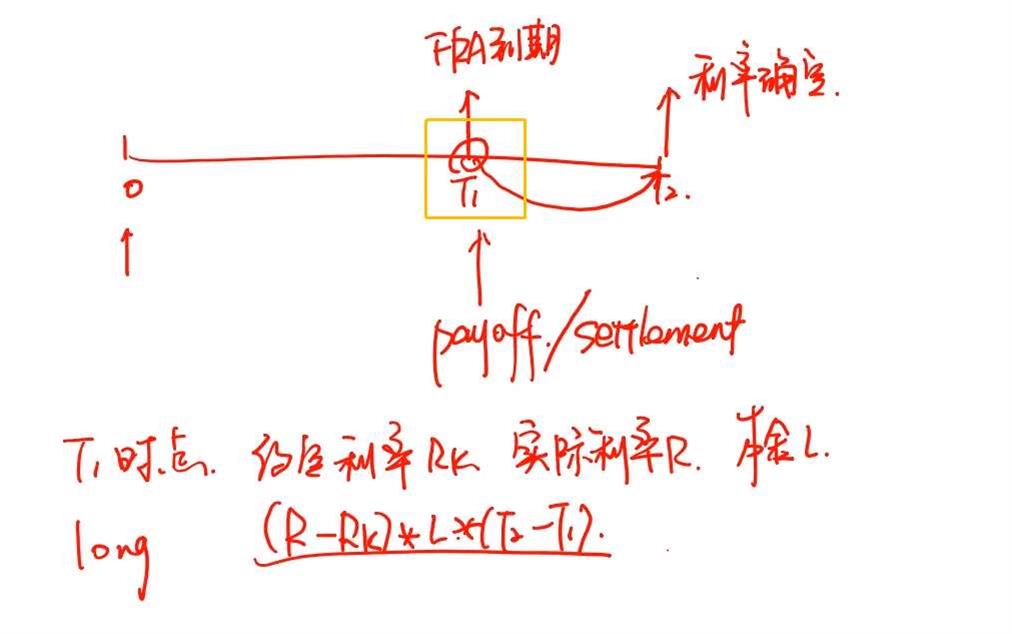 FRA到期
利率确定.
0
T₁
T₂.
payoff./settlement
T₁时点. 约定利率RK 实际利率R. 本金L.
long (R-RK)*L*(T₂-T₁).